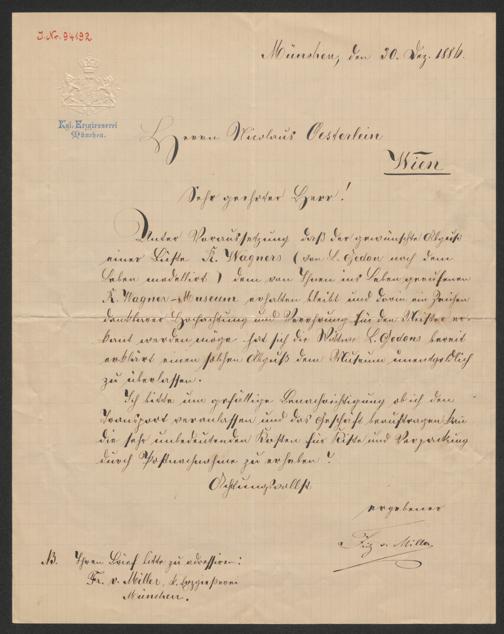 J. Nr. 94192
München, den 30. Dez. 1886.
Kgl. Erzgiesserei
München.
Herrn Nicolaus Oesterlein
Wien
Sehr geehrter Herr!
Unter Voraussetzung daß der gewünschte Abguß
einer Büste R. Wagners (von L. Gedon nach dem
Leben modellirt) dem von Ihnen ins Leben gerufenen
R. Wagner-Museum erhalten bleibt und darin ein Zeichen
dankbarer Hochachtung und Verehrung für den Meister er-
kant werden möge. hat sich die Wittwe L. Gedons bereit
erklärt einen solchen Abguß dem Museum unentgeldlich
zu überlassen.
Ich bitte um gefällige Benachrichtigung ob ich den
Transport veranlassen und das Geschäft beauftragen kan
die sehr unbedeutenden Kosten für Kiste und Verpackung
durch Postnachnahme zu erheben?
Achtungsvollst
ergebener
Fritz v. Miller.
NB. Ihren Brief bitte zu adressiren:
Fr. v. Miller, k. Erzgießerei
München.